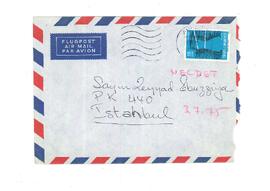 FLUGPOST
AIR MAIL
PAR AVION
NECDET
Sayın Ziyyad Ebuzziya
PK 440
3.7.75
Istanbul